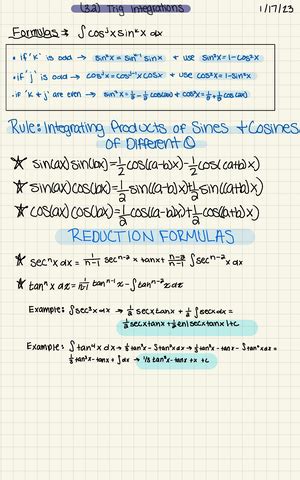 (3.2) Trig Integrations 1/17/23
Formulas: ∫cos^j x sin^k x dx
• if 'k' is odd → sin^k x = sin^(k-1) x sin x + use sin²x = 1 - cos²x
• if 'j' is odd → cos^j x = cos^(j-1) x cos x + use cos²x = 1 - sin²x
• if 'k + j' are even → sin²x = 1/2 - 1/2 cos(2x) + cos²x = 1/2 + 1/2 cos(2x)
Rule: Integrating Products of Sines + Cosines
of Different θ
★ sin(ax)sin(bx) = 1/2 cos((a-b)x) - 1/2 cos((a+b)x)
★ sin(ax)cos(bx) = 1/2 sin((a-b)x) + 1/2 sin((a+b)x)
★ cos(ax)cos(bx) = 1/2 cos((a-b)x) + 1/2 cos((a+b)x)
REDUCTION FORMULAS
★ sec^n x dx = 1/(n-1) sec^(n-2) x tan x + (n-2)/(n-1) ∫sec^(n-2) x dx
★ tan^n x dx = 1/(n-1) tan^(n-1) x - ∫tan^(n-2) x dx
Example: ∫sec³x dx → 1/2 sec x tan x + 1/2 ∫sec x dx =
1/2 sec x tan x + 1/2 ln|sec x tan x| + c
Example: ∫tan⁴x dx → 1/3 tan³x - ∫tan²x dx → 1/3 tan³x - tan x - ∫tan⁰x dx =
1/3 tan³x - tan x + ∫dx → 1/3 tan³x - tan x + x + c